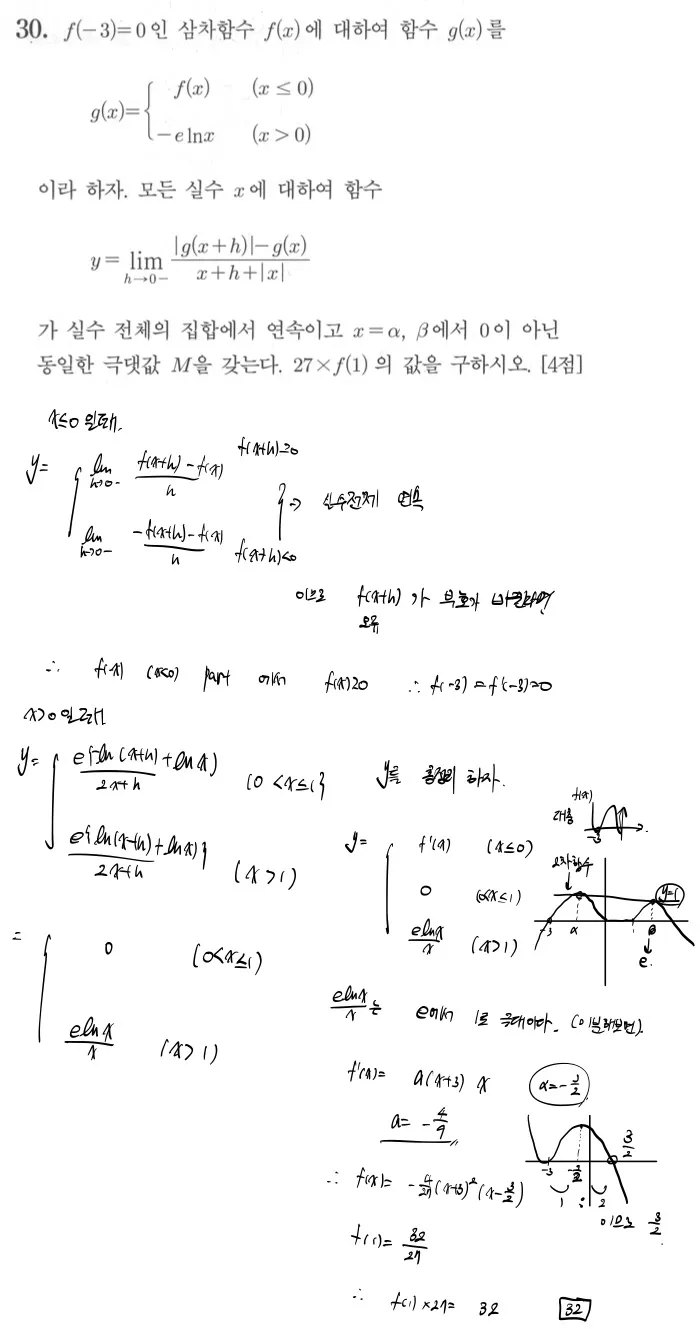 30. f(-3)=0인 삼차함수 f(x)에 대하여 함수 g(x)를
g(x)={ f(x) (x ≤ 0)
-e lnx (x > 0)
이라 하자. 모든 실수 x에 대하여 함수
y = lim_{h→0-} (|g(x+h)|-g(x))/(x+h+|x|)
가 실수 전체의 집합에서 연속이고 x=α, β에서 0이 아닌
동일한 극댓값 M을 갖는다. 27×f(1)의 값을 구하시오. [4점]
x≤0 일 때.
y= { lim_{h→0-} (f(x+h)-f(x))/h f(x+h)≥0
lim_{h→0-} (-f(x+h)-f(x))/h f(x+h)<0
⇒ 실수전체 연속
이므로 f(x+h)가 부호가 바뀐다면
모순
∴ f(x) (x<0) part 에서 f(x)≥0 ∴ f(-3)=f'(-3)=0
x>0 일 때
y= { e{-ln(x+h)+lnx}/(2x+h) (0<x≤1)
e{ln(x+h)+lnx}/(2x+h) (x>1)
= { 0 (0<x≤1)
elnx/x (x>1)
y를 총정리 하자.
y= { f'(x) (x≤0)
0 (0<x≤1)
elnx/x (x>1)
f(x)
대충
-3
2차함수
y=1
-3 α 1 β
e.
elnx/x 는 e에서 1로 극대이다. (미분해보면).
f'(x)= a(x+3)x α=-3/2
a= -4/9
∴ f(x)= -4/27(x+3)²(x-3/2)
-3 -3/2 3/2
1 : 2
이므로 3/2
f(1)= 32/27
∴ f(1)×27= 32 32